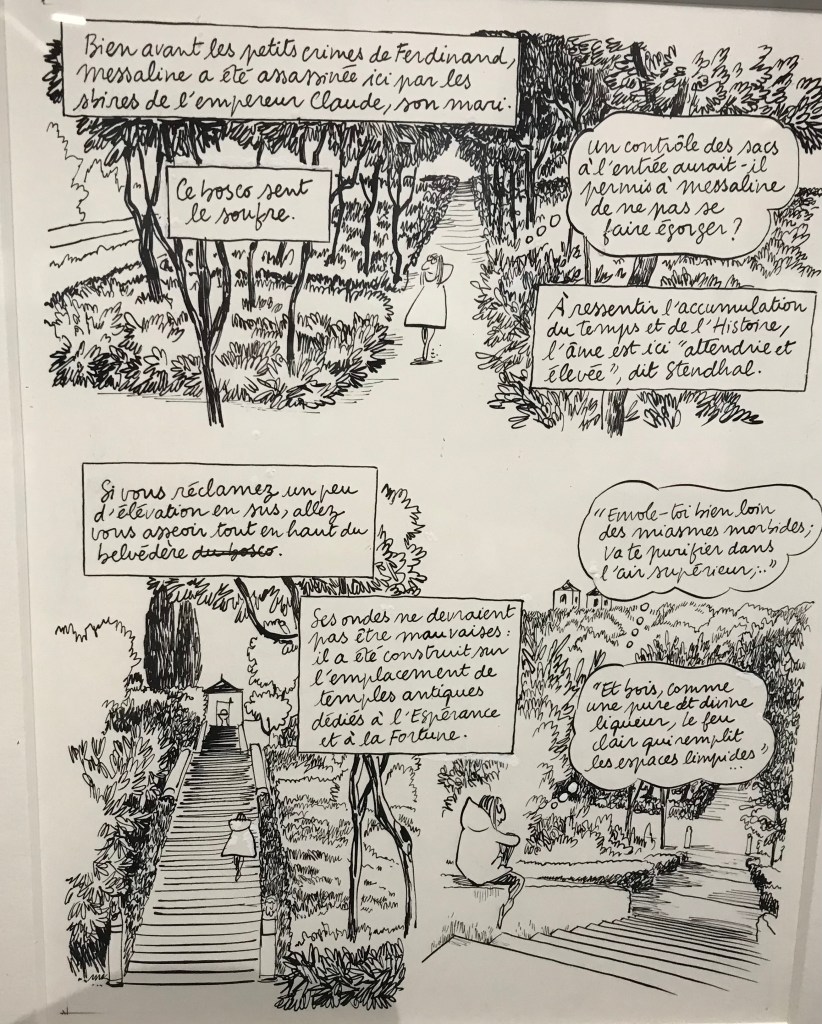 Bien avant les petits crimes de Ferdinand,
Messaline a été assassinée ici par les
sbires de l'empereur Claude, son mari.
Ce bosco sent
le soufre.
Un contrôle des sacs
à l'entrée aurait-il
permis à Messaline
de ne pas se
faire égorger ?
À ressentir l'accumulation
du temps et de l'Histoire,
l'âme est ici "attendrie et
élevée", dit Stendhal.
Si vous réclamez un peu
d'élévation en sus, allez
vous asseoir tout en haut du
belvédère du bosco.
Ses ondes ne devraient
pas être mauvaises :
il a été construit sur
l'emplacement de
temples antiques
dédiés à l'Espérance
et à la Fortune.
"Envole-toi bien loin
des miasmes morbides ;
va te purifier dans
l'air supérieur,..."
"Et bois, comme
une pure et divine
liqueur, le feu
clair qui remplit
les espaces limpides"...